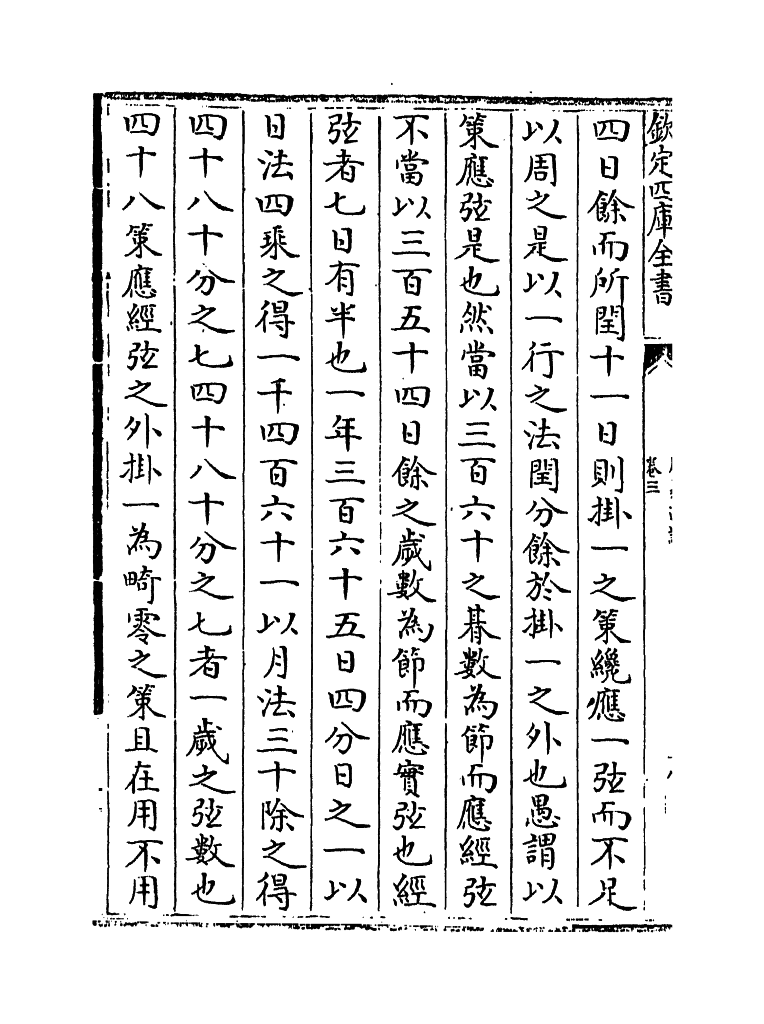 欽定四庫全書
卷三
四日餘而所閏十一日則掛一之策纔應一弦而不足
以周之是以一行之法閏分餘於掛一之外也愚謂以
策應弦是也然當以三百六十之朞數為節而應經弦
不當以三百五十四日餘之歲數為節而應實弦也經
弦者七日有半也一年三百六十五日四分日之一以
日法四乘之得一千四百六十一以月法三十除之得
四十八十分之七四十八十分之七者一歲之弦數也
四十八策應經弦之外掛一為畸零之策且在用不用